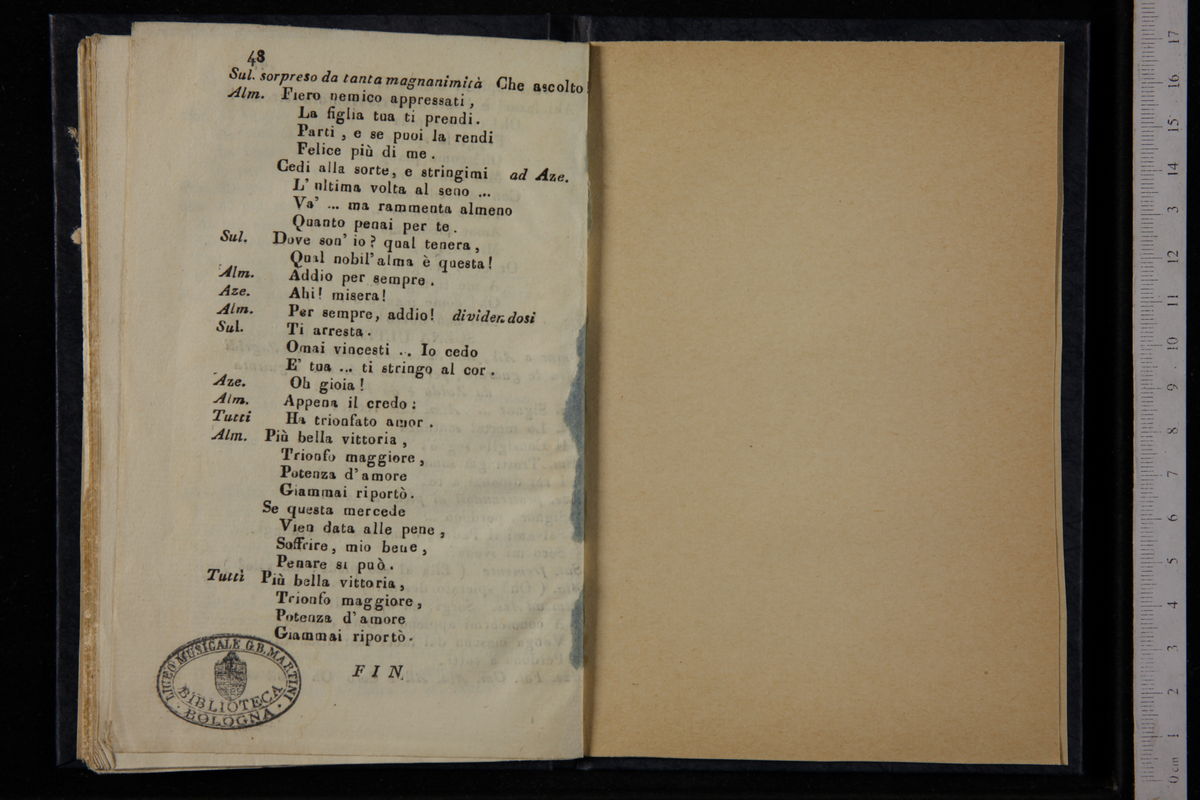 48
Sul. sorpreso da tanta magnanimità Che ascolto!
Alm. Fiero nemico appressati,
La figlia tua ti prendi.
Parti, e se puoi la rendi
Felice più di me.
Cedi alla sorte, e stringimi ad Aze.
L'ultima volta al seno ...
Va' ... ma rammenta almeno
Quanto penai per te.
Sul. Dove son' io? qual tenera,
Qual nobil'alma è questa!
Alm. Addio per sempre.
Aze. Ahi! misera!
Alm. Per sempre, addio! dividendosi
Sul. Ti arresta.
Omai vincesti .. Io cedo
E' tua ... ti stringo al cor.
Aze. Oh gioia!
Alm. Appena il credo:
Tutti Ha trionfato amor.
Alm. Più bella vittoria,
Trionfo maggiore,
Potenza d'amore
Giammai riportò.
Se questa mercede
Vien data alle pene,
Soffrire, mio bene,
Penare si può.
Tutti Più bella vittoria,
Trionfo maggiore,
Potenza d'amore
Giammai riportò.
FIN
LICEO MUSICALE G.B. MARTINI
BIBLIOTECA
· BOLOGNA ·
0 cm 1 2 3 4 5 6 7 8 9 10 11 12 3 14 15 16 17